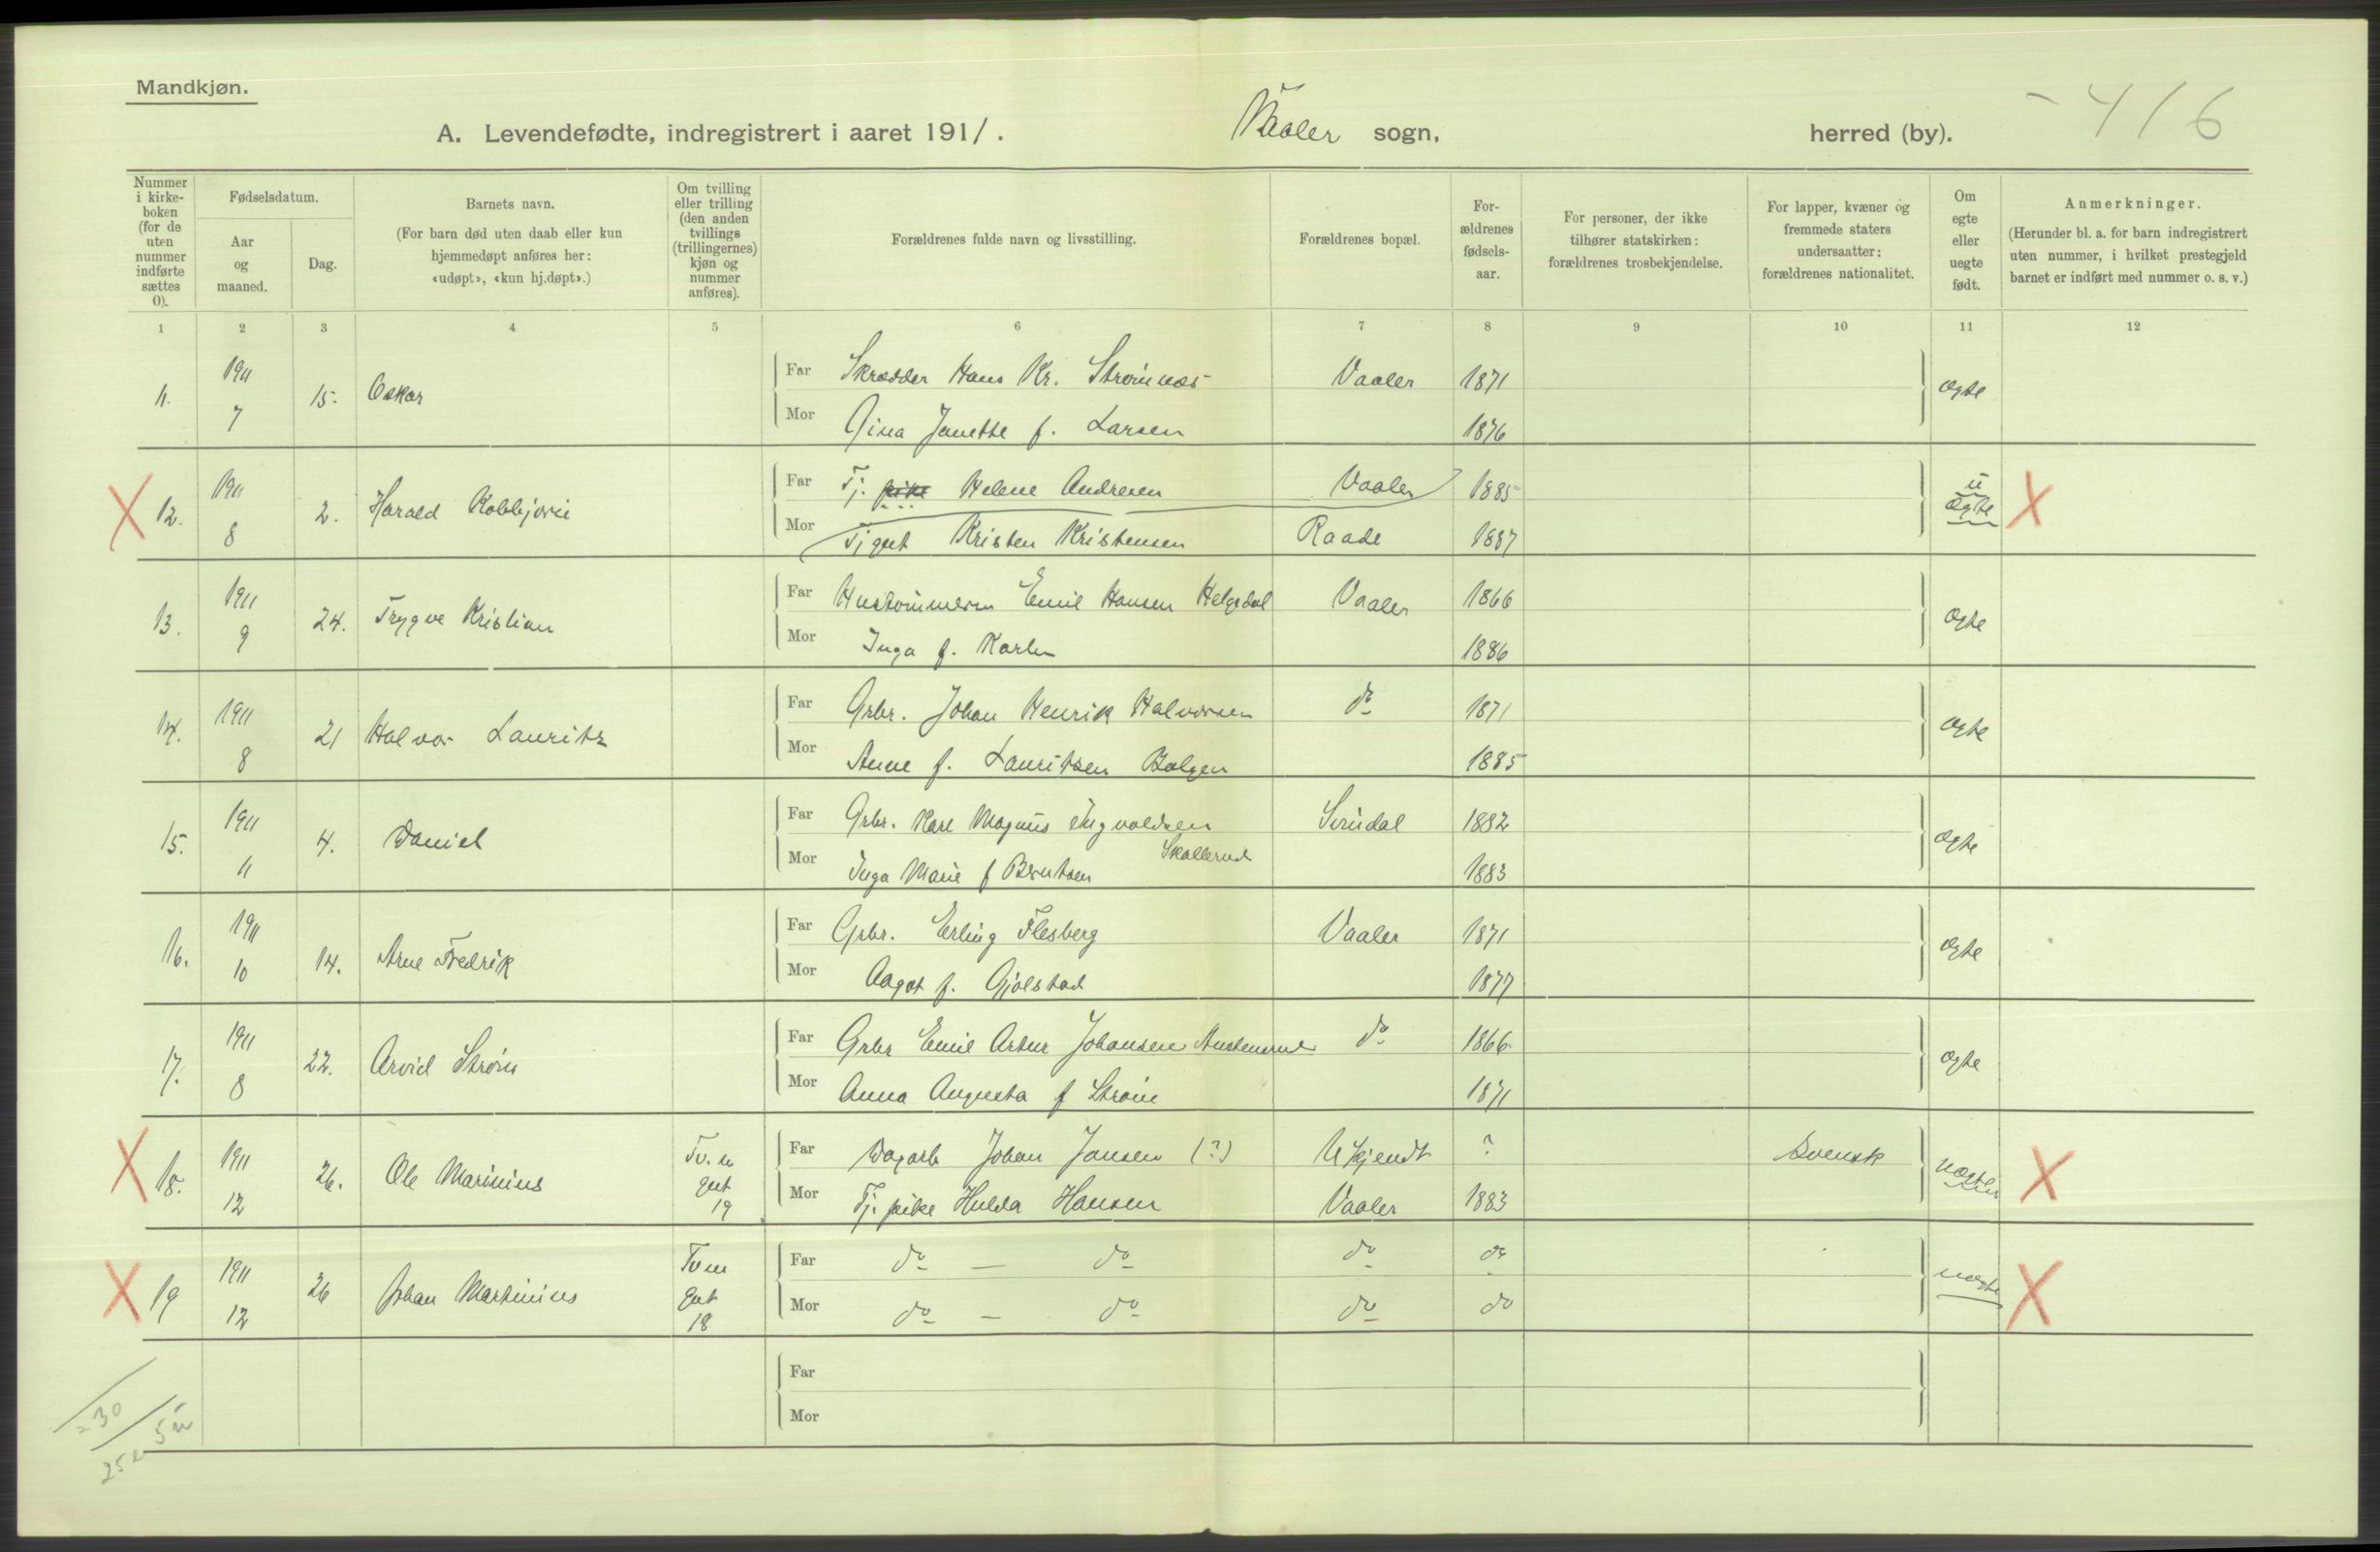 Mandkjøn.
A. Levendefødte, indregistrert i aaret 1911.
Vaaler sogn,
herred (by).
416
Nummer i kirke-boken (for de uten nummer indførte sættes 0).
Fødselsdatum.
Aar og maaned.
Dag.
Barnets navn.
(For barn død uten daab eller kun hjemmedøpt anføres her: «udøpt», «kun hj.døpt».)
Om tvilling eller trilling (den anden tvillings (trillingernes) kjøn og nummer anføres).
Forældrenes fulde navn og livsstilling.
Forældrenes bopæl.
For-ældrenes fødsels-aar.
For personer, der ikke tilhører statskirken: forældrenes trosbekjendelse.
For lapper, kvæner og fremmede staters undersaatter: forældrenes nationalitet.
Om egte eller uegte født.
Anmerkninger.
(Herunder bl. a. for barn indregistrert uten nummer, i hvilket prestegjeld barnet er indført med nummer o. s. v.)
1 2 3 4 5 6 7 8 9 10 11 12
11. 1911 7 15. Oskar
Far Skrædder Hans Kr. Strømnæs Vaaler 1871 ægte
Mor Gina Janette f. Larsen 1876
X 12. 1911 8 2. Harald
Far Tj. pike Helene Andresen Vaaler 1885 u ægte X
Mor Tjgut Kristen Kristensen Raade 1887
13. 1911 9 24. Trygve Kristian
Far Emil Hansen Helgedal Vaaler 1866 ægte
Mor Inga f. Karls 1886
14. 1911 8 21 Halvor Lauritz
Far Grbr. Johan Henrik Halvorsen do 1871 ægte
Mor Anne f. Lauritsen 1885
15. 1911 11 4. Daniel
Far Grbr. Karl Magnus Ingvaldsen Svindal 1882 ægte
Skallerud
Mor Inga Marie f Berntsen 1883
16. 1911 10 14. Arne Fredrik
Far Grbr. Erling Flesberg Vaaler 1871 ægte
Mor Aagot f. Gjølstad 1877
17. 1911 8 22. Arvid Strøm
Far Grbr Emil Artur Johansen do 1866 ægte
Mor Anna Augusta f Strøm 1871
X 18. 1911 12 26. Ole Marinius Tv. m gut 19
Far Dagarb Johan Jansen (?) Ukjendt ? Svensk uægte X
Mor Tj. pike Hulda Hansen Vaaler 1883
X 19 1911 12 26 Johan Martinius Tv m gut 18
Far do — do do do uægte X
Mor do — do do do
Far
Mor
= 30
25 e 5 u